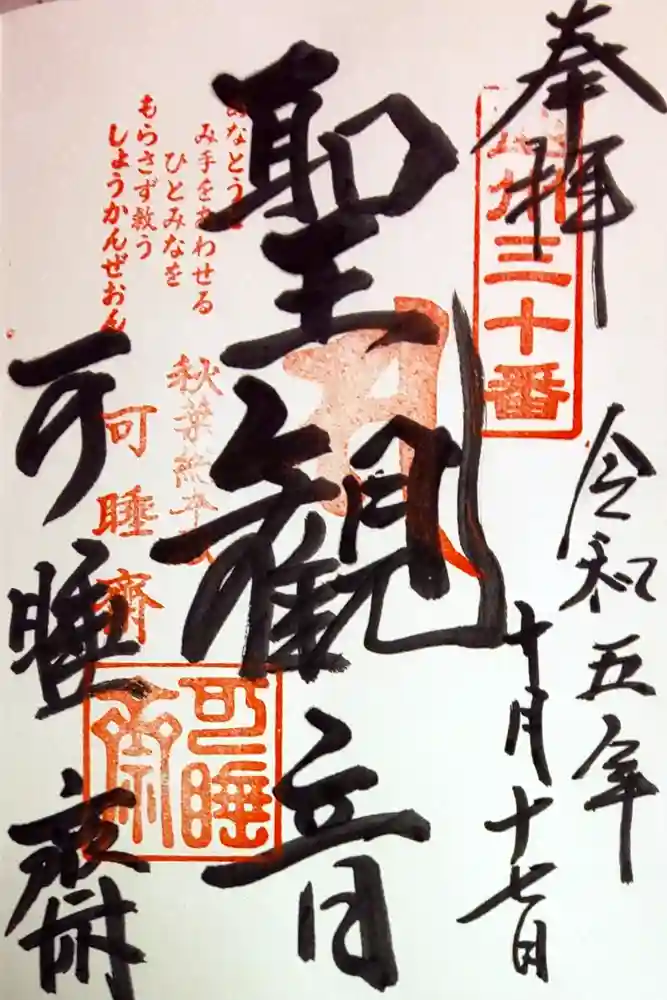 奉拝
三十番
令和五年
十月十七日
聖観音
み手をあわせる
ひとみなを
もらさず救う
しょうかんぜおん
秋葉総本殿
可睡斎
可睡齋
可睡齋